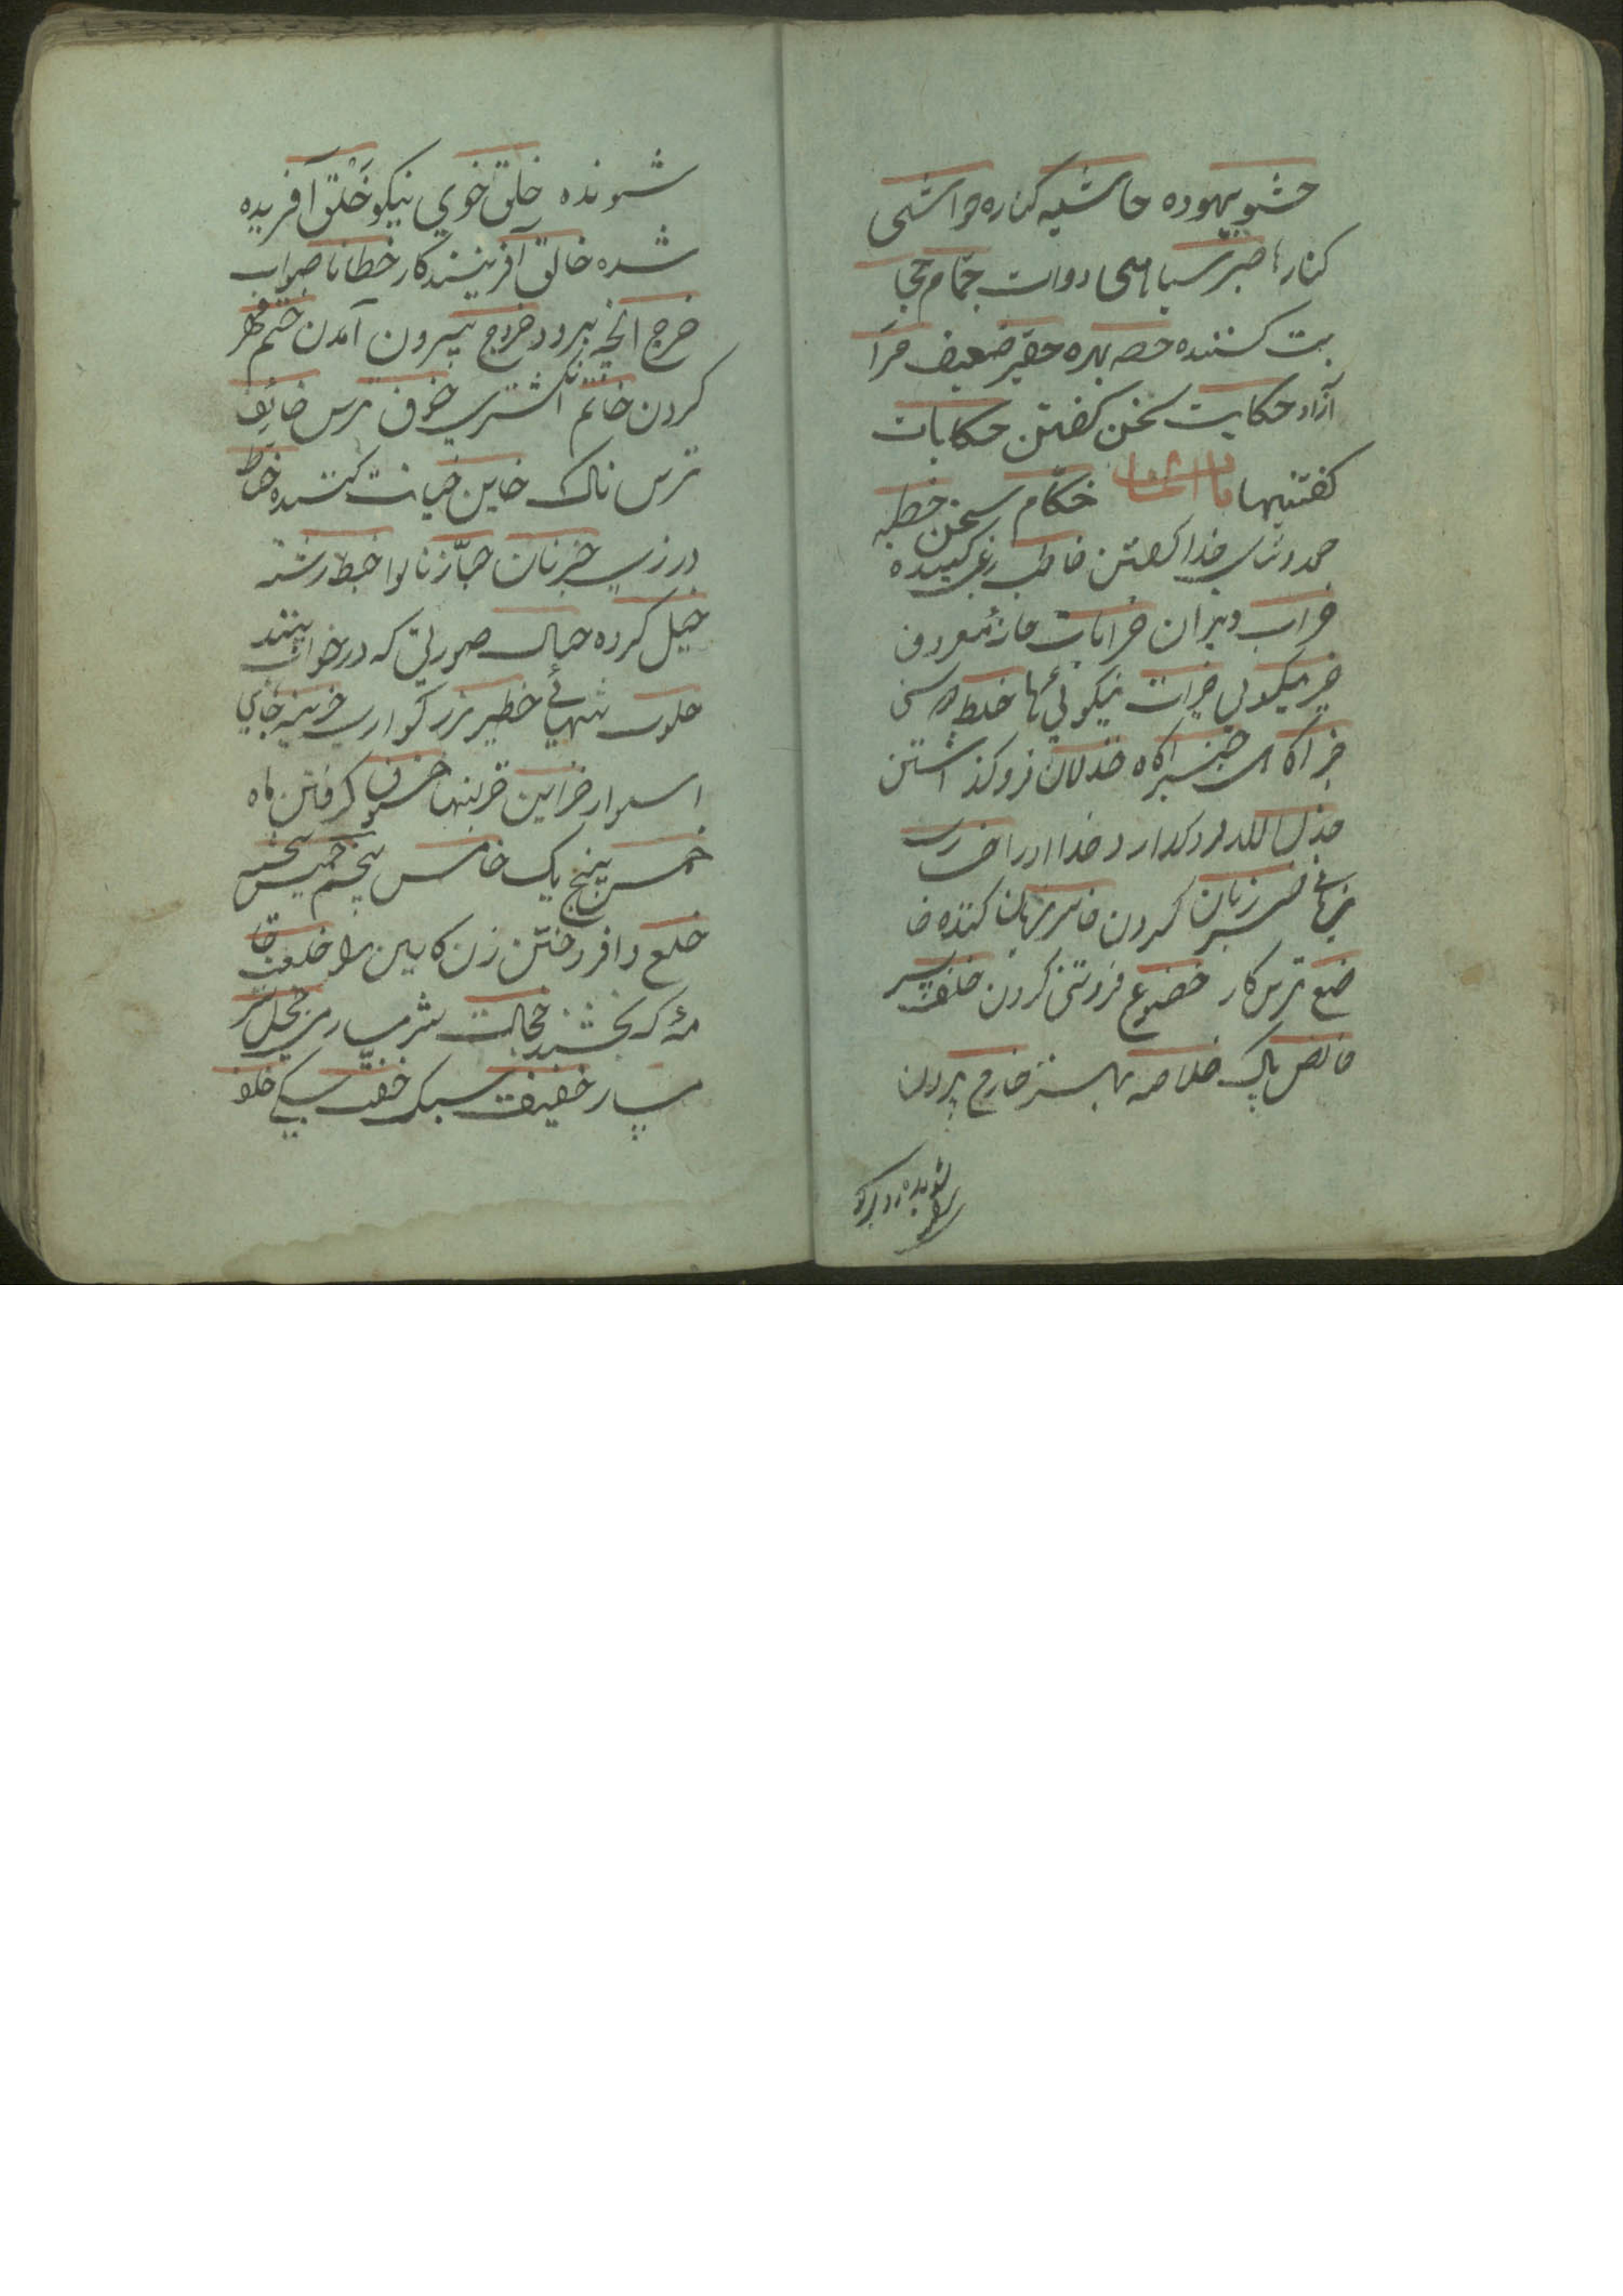 حشو بیهوده حاشیه کناره حواشی
کنارها حبر سیاهی دوات حجام حجا
مت کننده حصه بهره حقیر ضعیف حر آ
آزاد حکایت سخن کفتن حکایات
کفتنیها باب الخا سخن خطبه
حمد وثنای خدا کفتن خاطب
خراب ویران خرابات خانه معروف
خیر نیکویی خیرات نیکوئیها خلط
خبر آکاهی خبیر آکاه خذلان فروکذاشتن
خدا اورا
زیانی خسر زیان کردن خاسر زیان کننده خا
ضع ترس کار خضوع فروتنی کردن خلف پسر
خالص پاک خلاصه بهتر خارج بیرون
شونده خلق خوي نیکو خَلق آفریده
شده خالق آفرینندکار خطا ناصواب
خرج آنچه برود خروج بیرون آمدن ختم مهر
کردن خاتم انکشتری خوف ترس خائف
ترس ناک خاین خیانت کننده خیاط
درزی خبز نان خبّاز نانوا خیط رشته
خیل کرده خیال صورتی که در خواب بینند
خلوت تنهائے خطیر بزرکوار خزینه جاي
استوار خزاین خزینها خسوف کرفتن ماه
خمس پنج یک خامس پنجم خمیس پنجشنبه
خلع وافروختن زن کابین را خلعت جا
مهٔ که بخشند خجالت شرمساری خجل شر
مسار خفیف سبک خفّت سبکے خلف